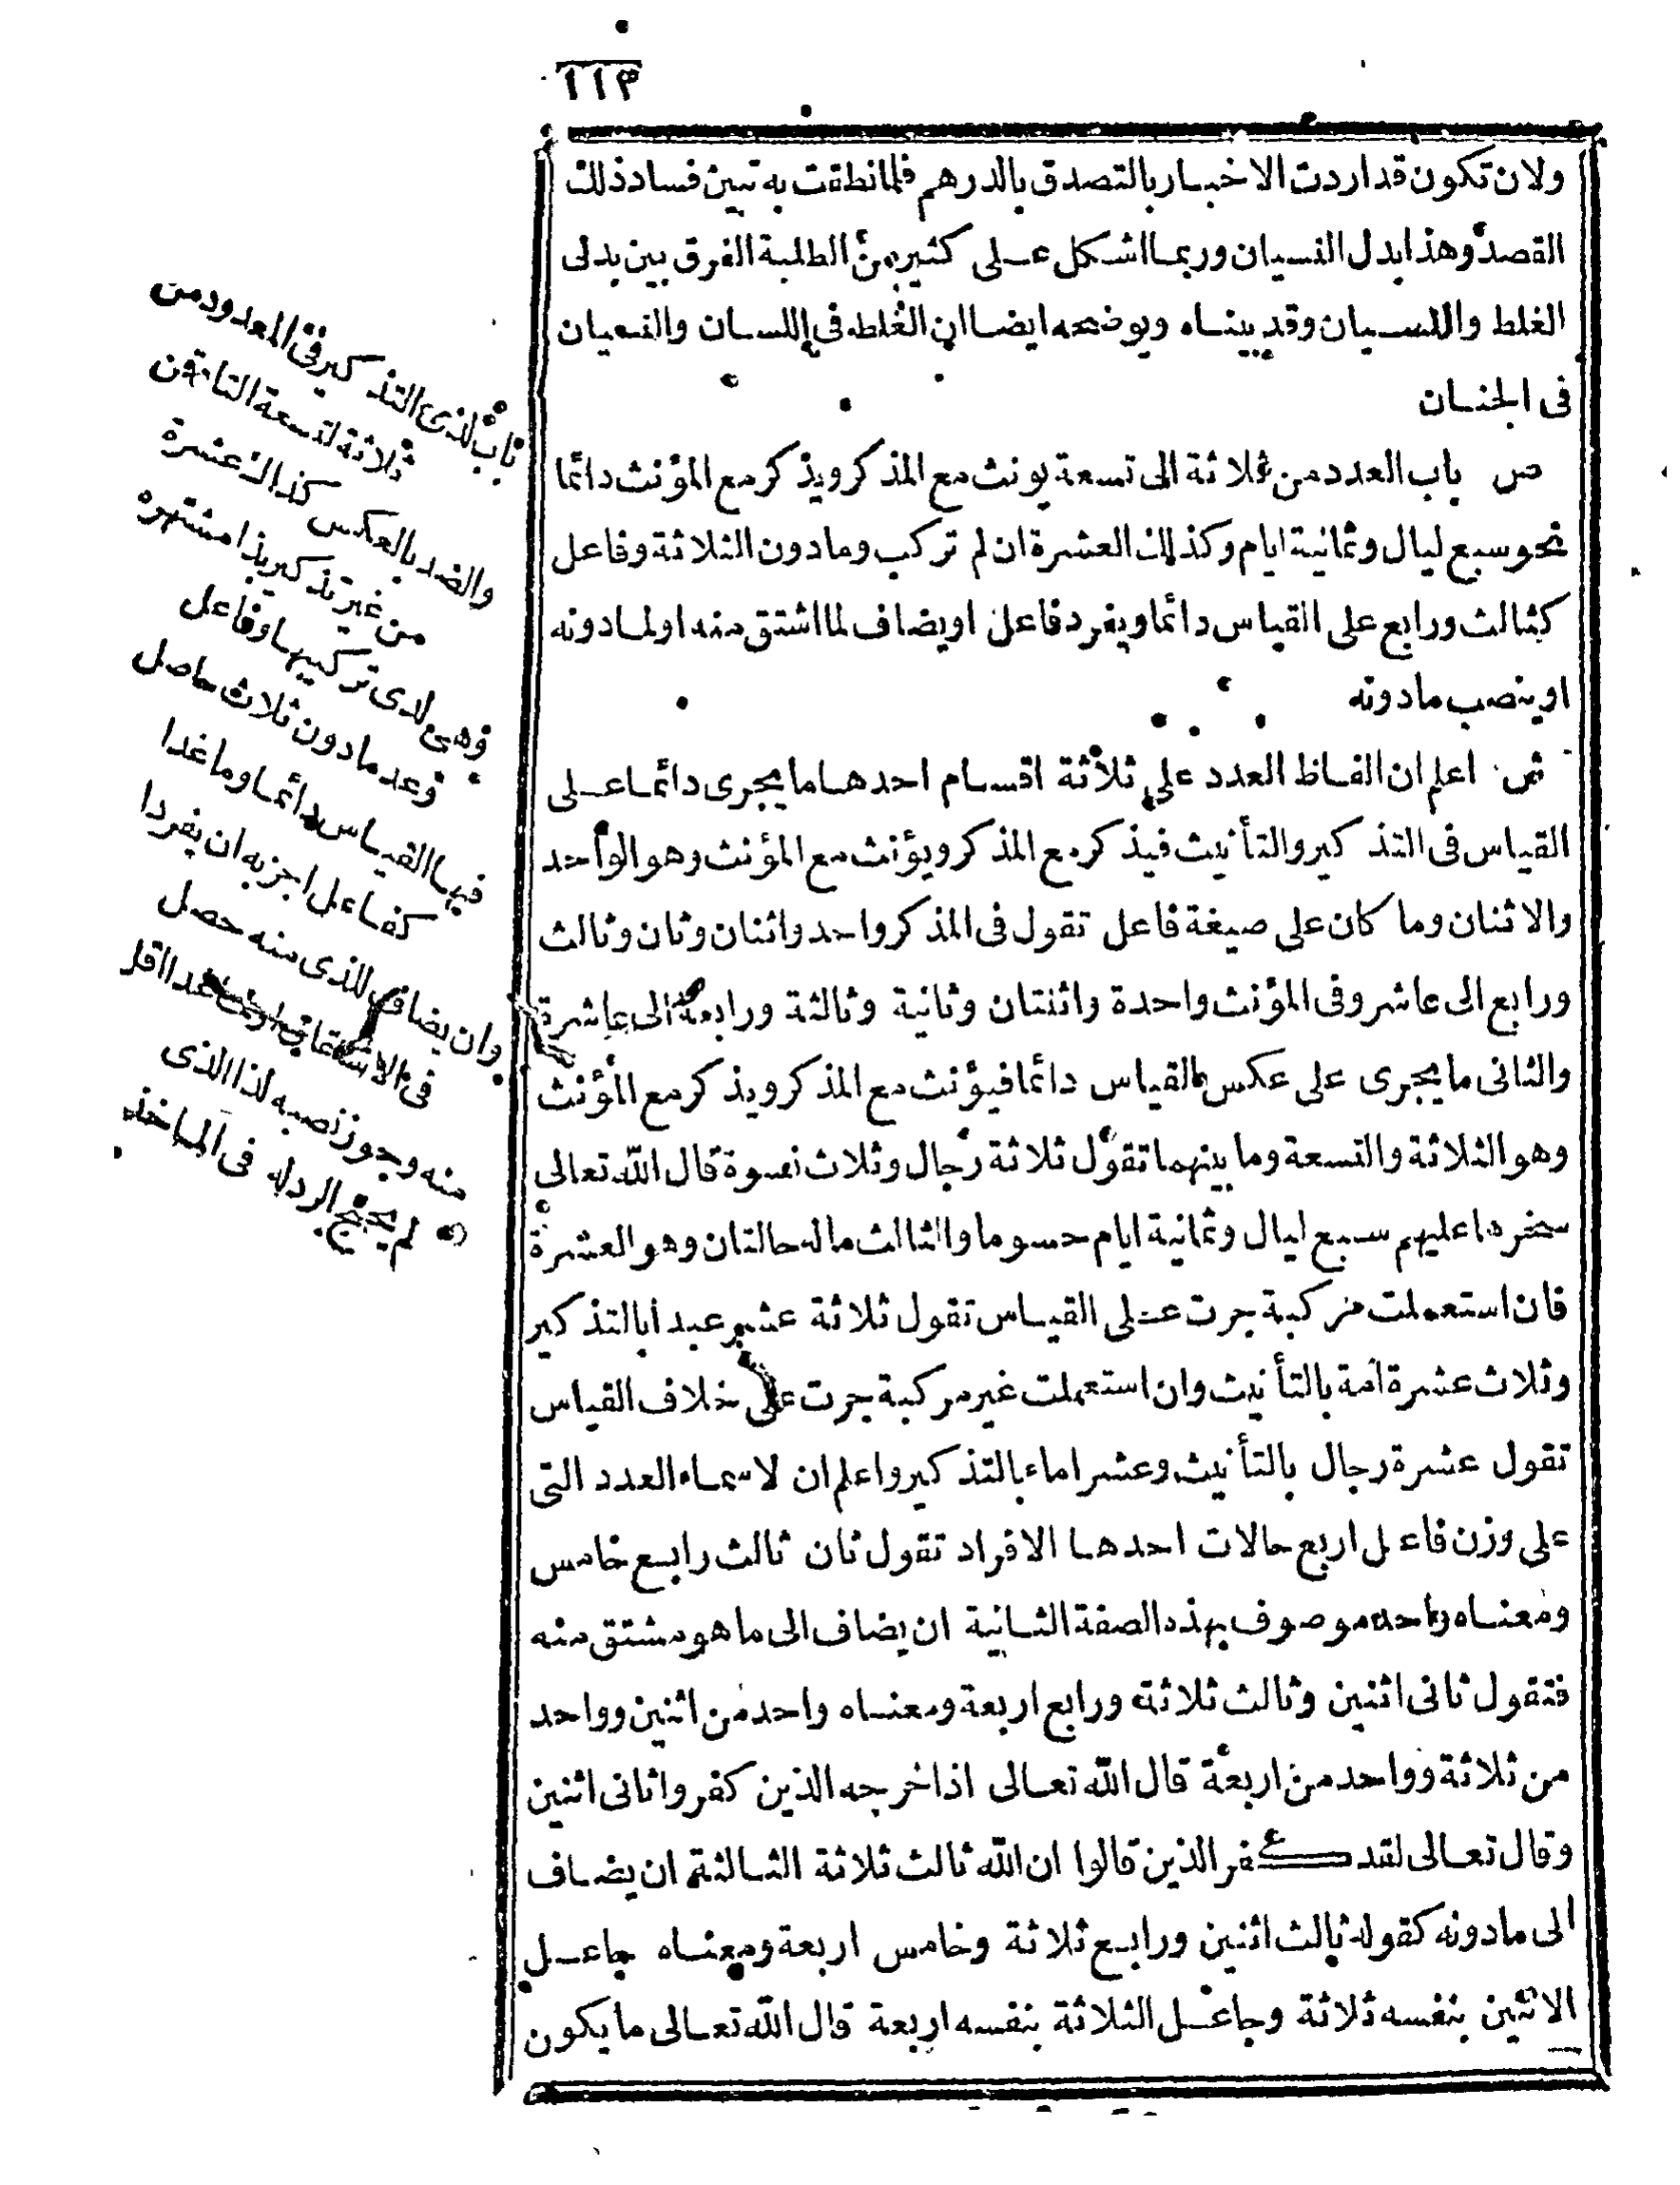 ١١٣
ولان تكون قد اردت الاخبار بالتصدق بالدرهم فلما نطقت به تبين فساد ذلك
القصد وهذا بدل النسيان وربما اشكل على كثير من الطلبة الفرق بين بدلى
الغلط والنسيان وقد بيناه ويوضحه ايضا ان الغلط فى اللسان والنسيان
فى الجنان
ص باب العدد من ثلاثة الى تسعة يونث مع المذكر ويذكر مع المؤنث دائما
نحو سبع ليال وثمانية ايام وكذلك العشرة ان لم تركب ومادون الثلاثة وفاعل
كثالث ورابع على القياس دائما ويفرد فاعل اويضاف لما اشتق منه اولمادونه
اوينصب مادونه
ش اعلم ان الفاظ العدد على ثلاثة اقسام احدها ما يجرى دائما على
القياس فى التذكير والتأنيث فيذكر مع المذكر ويؤنث مع المؤنث وهو الواحد
والاثنان وما كان على صيغة فاعل تقول فى المذكر واحد واثنان وثان وثالث
ورابع الى عاشر وفى المؤنث واحدة واثنتان وثانية وثالثة ورابعة الى عاشرة
والثانى ما يجرى على عكس القياس دائما فيؤنث مع المذكر ويذكر مع المؤنث
وهو الثلاثة والتسعة وما بينهما تقول ثلاثة رجال وثلاث نسوة قال الله تعالى
سخرها عليهم سبع ليال وثمانية ايام حسوما والثالث ماله حالتان وهو العشرة
فان استعملت مركبة جرت على القياس تقول ثلاثة عشر عبدا بالتذكير
وثلاث عشرة امة بالتأنيث وان استعملت غير مركبة جرت على خلاف القياس
تقول عشرة رجال بالتأنيث وعشر اماء بالتذكير واعلم ان لاسماء العدد التى
على وزن فاعل اربع حالات احدها الافراد تقول ثان ثالث رابع خامس
ومعناه واحد موصوف بهذه الصفة الثانية ان يضاف الى ما هو مشتق منه
فتقول ثانى اثنين وثالث ثلاثة ورابع اربعة ومعناه واحد من اثنين وواحد
من ثلاثة وواحد من اربعة قال الله تعالى اذ اخرجه الذين كفروا ثانى اثنين
وقال تعالى لقد كفر الذين قالوا ان الله ثالث ثلاثة الثالثة ان يضاف
الى مادونه كقوله ثالث اثنين ورابع ثلاثة وخامس اربعة ومعناه جاعل
الاثنين بنفسه ثلاثة وجاعل الثلاثة بنفسه اربعة قال الله تعالى ما يكون
باب لذى التذكير فى المعدود من
ثلاثة لتسعة التا تقرن
والضد بالعكس كذا العشرة
من غير تذكير بذا مشتهره
وهى لدى تركيبها وفاعل
وعد مادون ثلاث حاصل
فيها القياس دائما وما غدا
كفاعل اجز به ان يفردا
وان يضاف للذى منه حصل
فى الاشتقاق او لما غدا اقل
منه وجوز نصبه لذا الذى
لم يحتج الرد له فى الماخذ